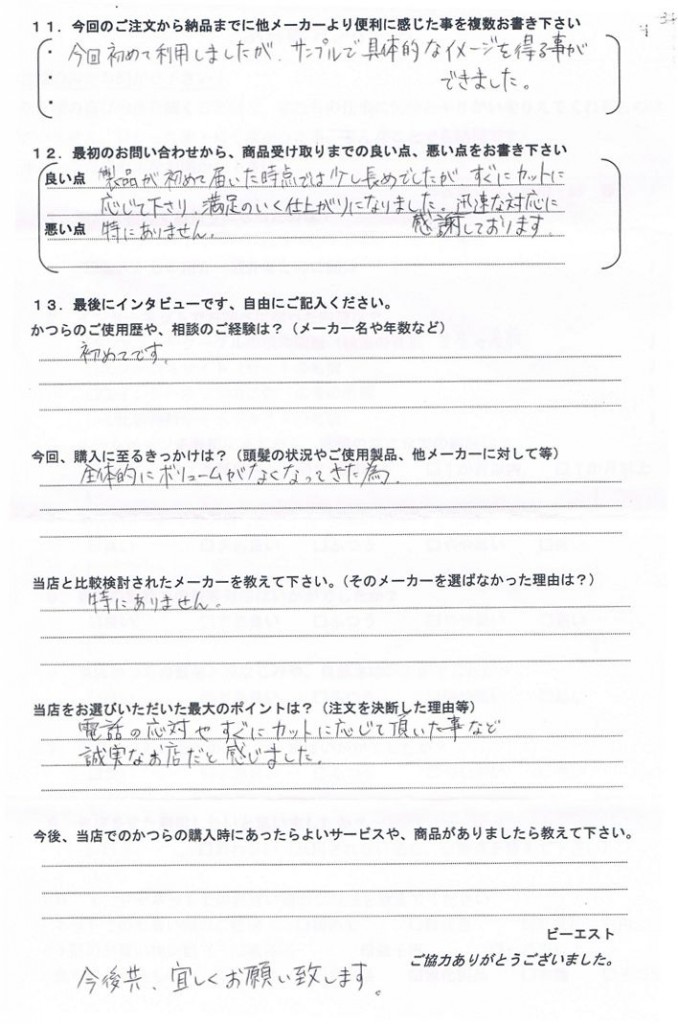 11．今回のご注文から納品までに他メーカーより便利に感じた事を複数お書き下さい
・今回初めて利用しましたが、サンプルで具体的なイメージを得る事が
・できました。
12．最初のお問い合わせから、商品受け取りまでの良い点、悪い点をお書き下さい
良い点 製品が初めて届いた時点では少し長めでしたが すぐにカットに
応じて下さり、満足のいく仕上がりになりました。迅速な対応に
感謝しております。
悪い点 特にありません。
13．最後にインタビューです、自由にご記入ください。
かつらのご使用歴や、相談のご経験は？（メーカー名や年数など）
初めてです。
今回、購入に至るきっかけは？（頭髪の状況やご使用製品、他メーカーに対して等）
全体的にボリュームがなくなってきた為。
当店と比較検討されたメーカーを教えて下さい。（そのメーカーを選ばなかった理由は？）
特にありません。
当店をお選びいただいた最大のポイントは？（注文を決断した理由等）
電話の応対や すぐにカットに応じて頂いた事など
誠実なお店だと感じました。
今後、当店でのかつらの購入時にあったらよいサービスや、商品がありましたら教えて下さい。
ビーエスト
ご協力ありがとうございました。
今後共、宜しくお願い致します。